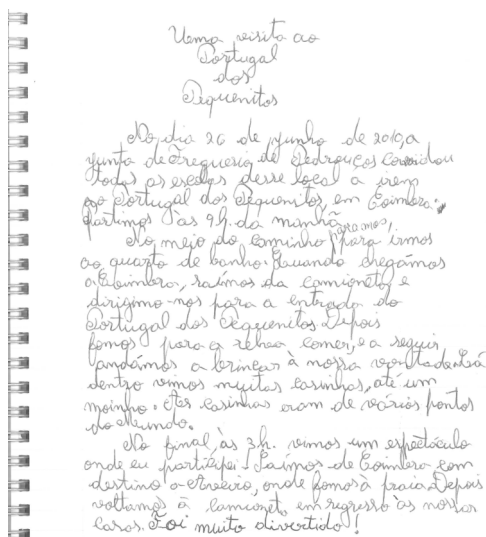 Uma visita ao
Portugal
dos
Pequenitos
No dia 26 de junho de 2010, a
junta de Freguesia de Pedrouços convidou
todas as escolas desse local a irem
ao Portugal dos Pequenitos, em Coimbra.
Partimos às 9h. da manhã.
No meio do caminho paramos, para irmos
ao quarto de banho. Quando chegámos
a Coimbra, saímos da camioneta e
dirigimo-nos para a entrada do
Portugal dos Pequenitos. Depois
fomos para a relva comer, e a seguir
andámos a brincar à nossa vontade. Lá
dentro vimos muitas casinhas, até um
moinho. As casinhas eram de vários pontos
do Mundo.
No final, às 3h. vimos um espetáculo
onde eu participei. Saímos de Coimbra com
destino a Aveiro, onde fomos à praia. Depois
voltamos à camionet, em regresso às nossas
casas. Foi muito divertido!